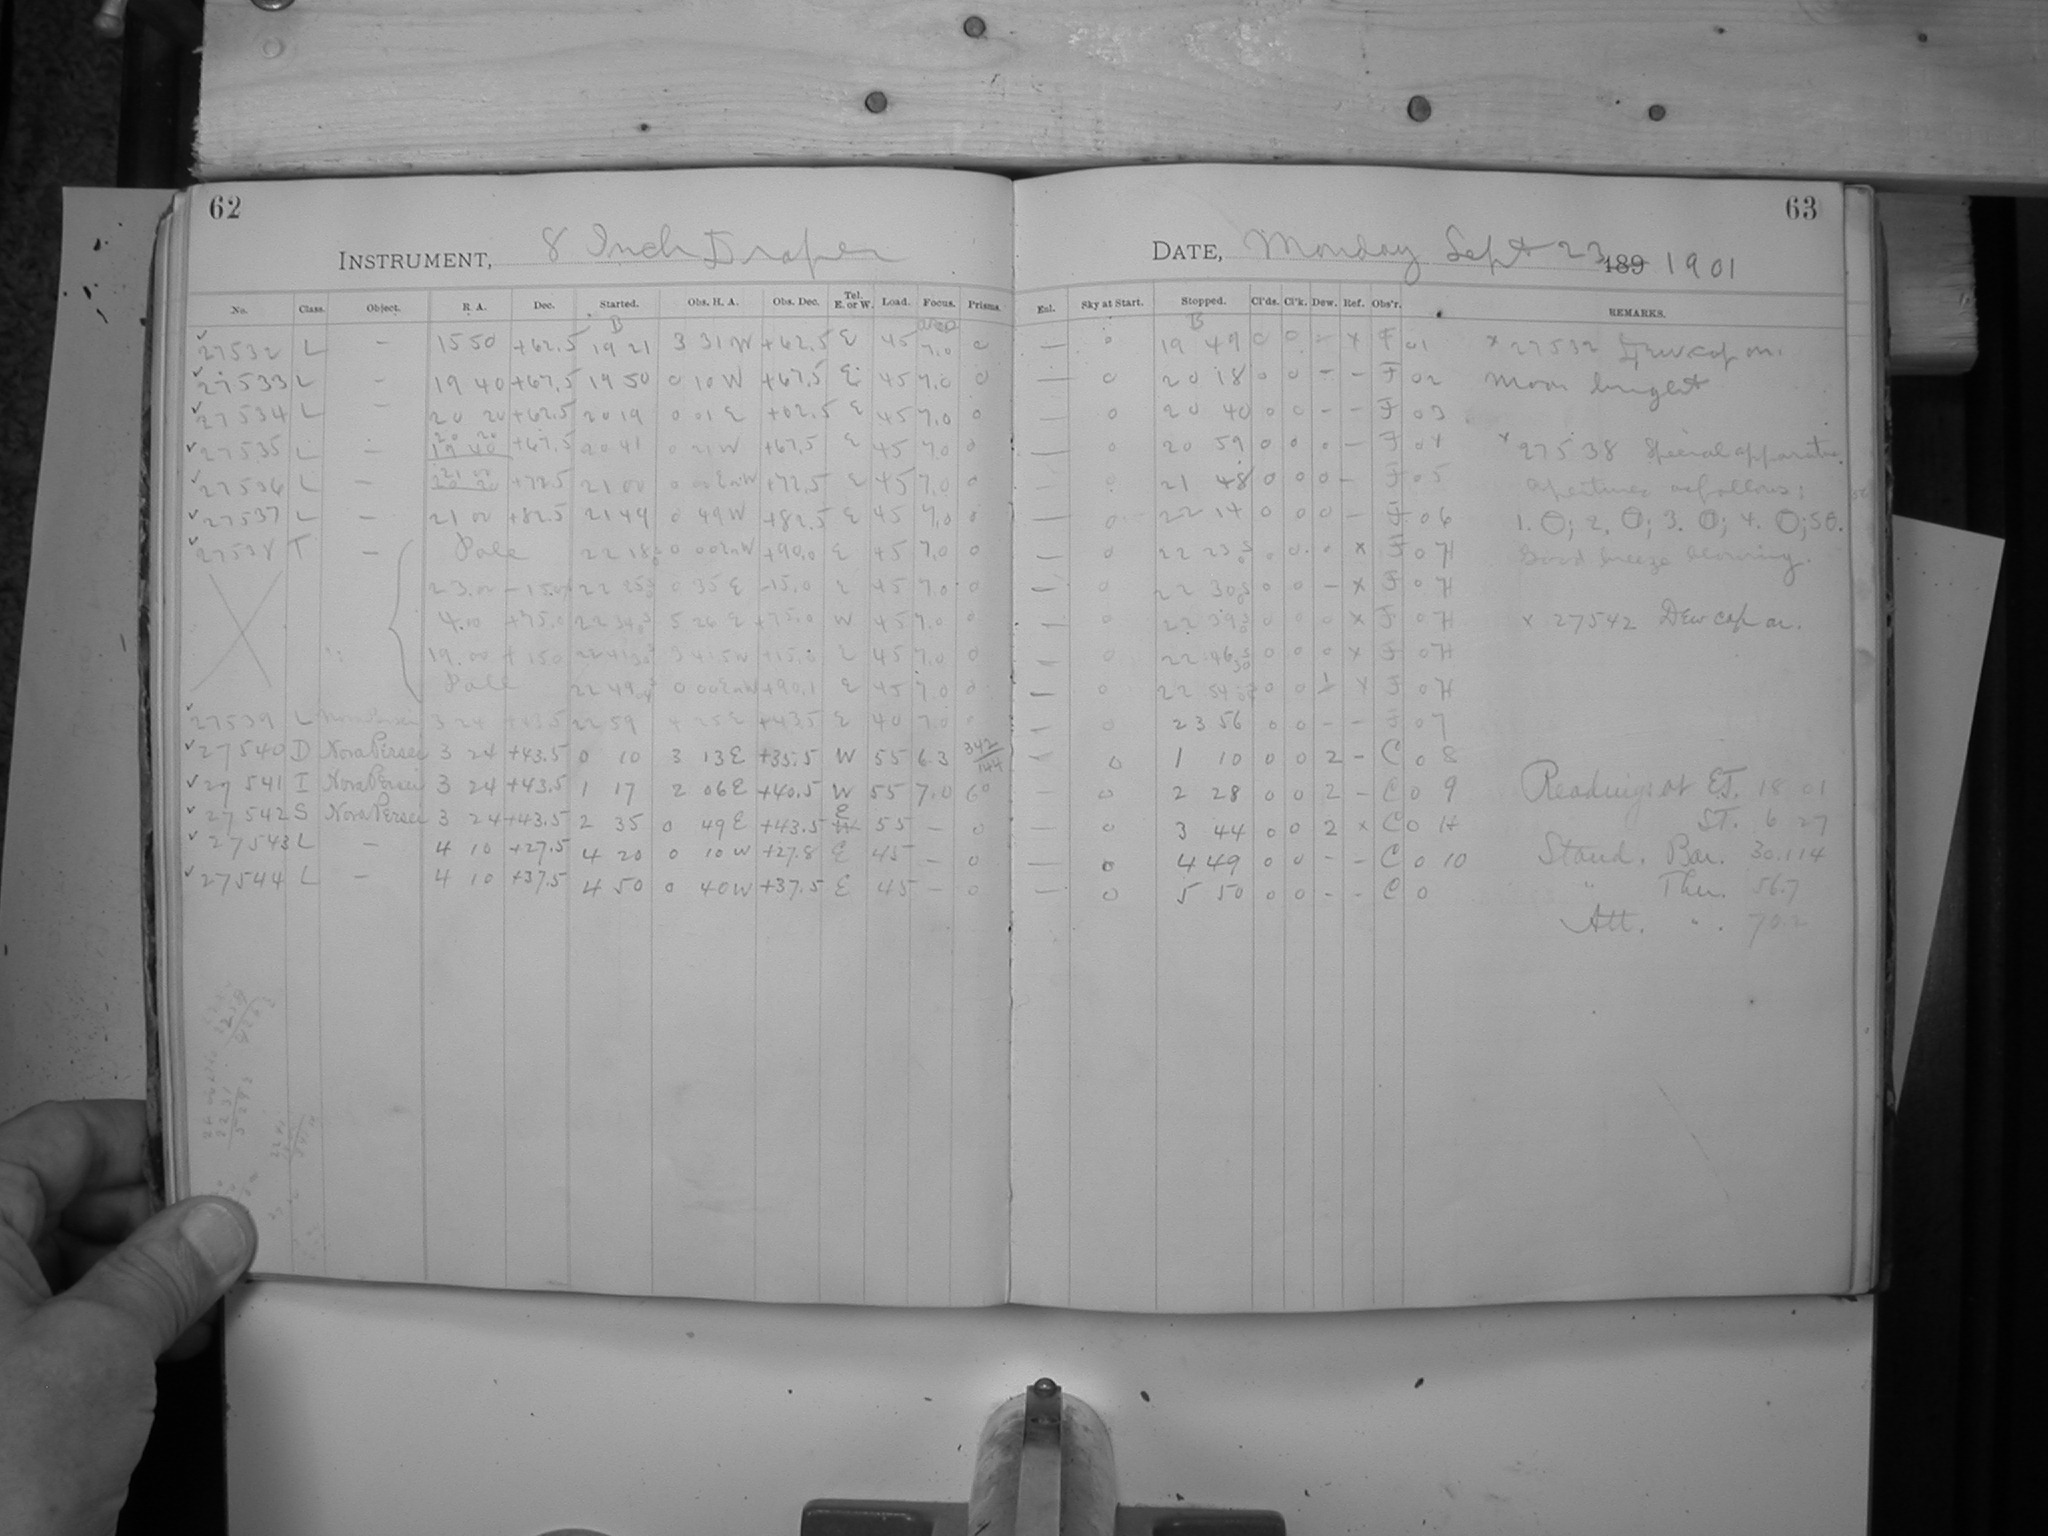 62
INSTRUMENT, 8 Inch Draper
No. Class. Object. R. A. Dec. Started. Obs. H. A. Obs. Dec. Tel. E. or W. Load. Focus. Prisms.
27532 L – 15 50 +62.5 19 21 3 31 W +62.5 E 45 7.0 0
27533 L – 19 40 +67.5 19 50 0 10 W +67.5 E 45 7.0 0
27534 L – 20 20 +62.5 20 19 0 01 E +62.5 E 45 7.0 0
27535 L – 20 20 19 40 +67.5 20 41 0 21 W +67.5 E 45 7.0 0
27536 L – 21 00 20 20 +72.5 21 00 0 00 E or W +72.5 E 45 7.0 0
27537 L – 21 00 +82.5 21 49 0 49 W +82.5 E 45 7.0 0
27538 T – Pole 22 18 0 00 E or W +90.0 E 45 7.0 0
23.00 –15.0 22 25 0 35 E –15.0 E 45 7.0 0
4.10 +75.0 22 34 5 26 E +75.0 W 45 7.0 0
19.00 +15.0 22 41 3 41.5 W +15.0 E 45 7.0 0
Pole 22 49 0 00 E or W +90.1 E 45 7.0 0
27539 L Nova Persei 3 24 +43.5 22 59 4 25 E +43.5 E 40 7.0 0
27540 D Nova Persei 3 24 +43.5 0 10 3 13 E +35.5 W 55 6.3 342/144
27541 I Nova Persei 3 24 +43.5 1 17 2 06 E +40.5 W 55 7.0 60
27542 S Nova Persei 3 24 +43.5 2 35 0 49 E +43.5 E W 55 – 0
27543 L – 4 10 +27.5 4 20 0 10 W +27.8 E 45 – 0
27544 L – 4 10 +37.5 4 50 0 40 W +37.5 E 45 – 0
63
DATE, Monday Sept 23 189 1901
Enl. Sky at Start. Stopped. Cl'ds. Cl'k. Dew. Ref. Obs'r. REMARKS.
— 0 19 49 0 0 – x F 01 x 27532 Dew cap on.
— 0 20 18 0 0 – – F 02 Moon bright
0 20 40 0 0 – – F 03
— 0 20 59 0 0 0 – F 04 x 27538 Special apparatus
— 0 21 48 0 0 0 – F 05 apertures as follows:
— 0 22 17 0 0 0 – F 06 1. ; 2. ; 3. ; 4. ; 5
— 0 22 23 0 0 0 x F 0H Good breeze blowing.
— 0 22 30 0 0 – x F 0H
— 0 22 39 0 0 0 x F 0H x 27542 Dew cap on.
— 0 22 46 0 0 0 x F 0H
— 0 22 54 0 0 1 x F 0H
0 23 56 0 0 – – F 07
— 0 1 10 0 0 2 – C 0 8
— 0 2 28 0 0 2 – C 0 9 Readings at E.T. 18 01
— 0 3 44 0 0 2 x C 0 H S.T. 6 27
— 0 4 49 0 0 – – C 0 10 Stand. Bar. 30.114
— 0 5 50 0 0 – – C 0 " Ther. 56.7
Att. " . 70.2